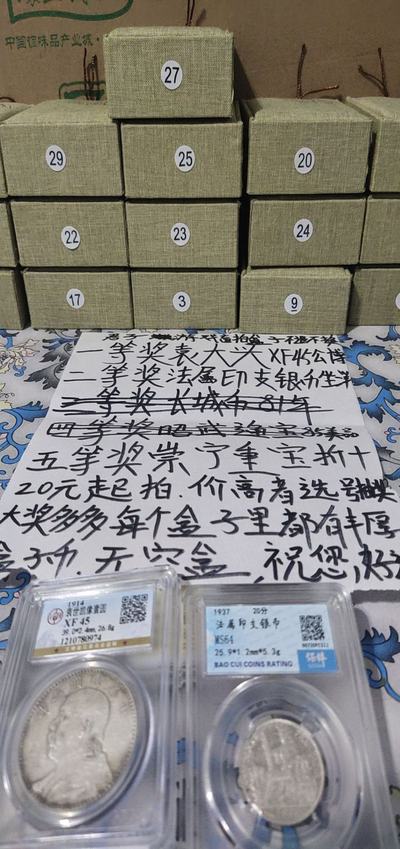 中国调味品产业城
27
29
25
20
22
23
24
17
3
9
一等奖袁大头XF45公博
二等奖法属印支银币
三等奖长城币81年
四等奖昭武通宝85美品
五等奖崇宁重宝折十
20元起拍.价高者选号抽奖
大奖多多每个盒子里都有丰厚
无空盒,祝您,好
1914
袁世凯像壹圆
XF 45
39.0*2.4mm,26.8g
1210780974
1937 20分
法属印支银币
MS64
25.9*1.2mm*5.3g
BAO CUI COINS RATING